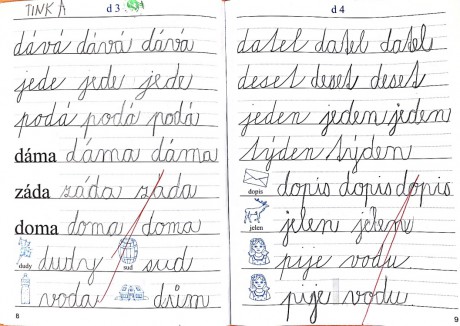 TINKA
d 3
dává dává dává
jede jede jede
podá podá podá
dáma dáma dáma
záda záda záda
doma doma doma
dudy sud
dudy sud
voda dům
8
d 4
datel datel datel
deset deset deset
jeden jeden jeden
týden týden
dopis dopis dopis
dopis
jelen jelen
jelen
pije vodu
pije vodu
9